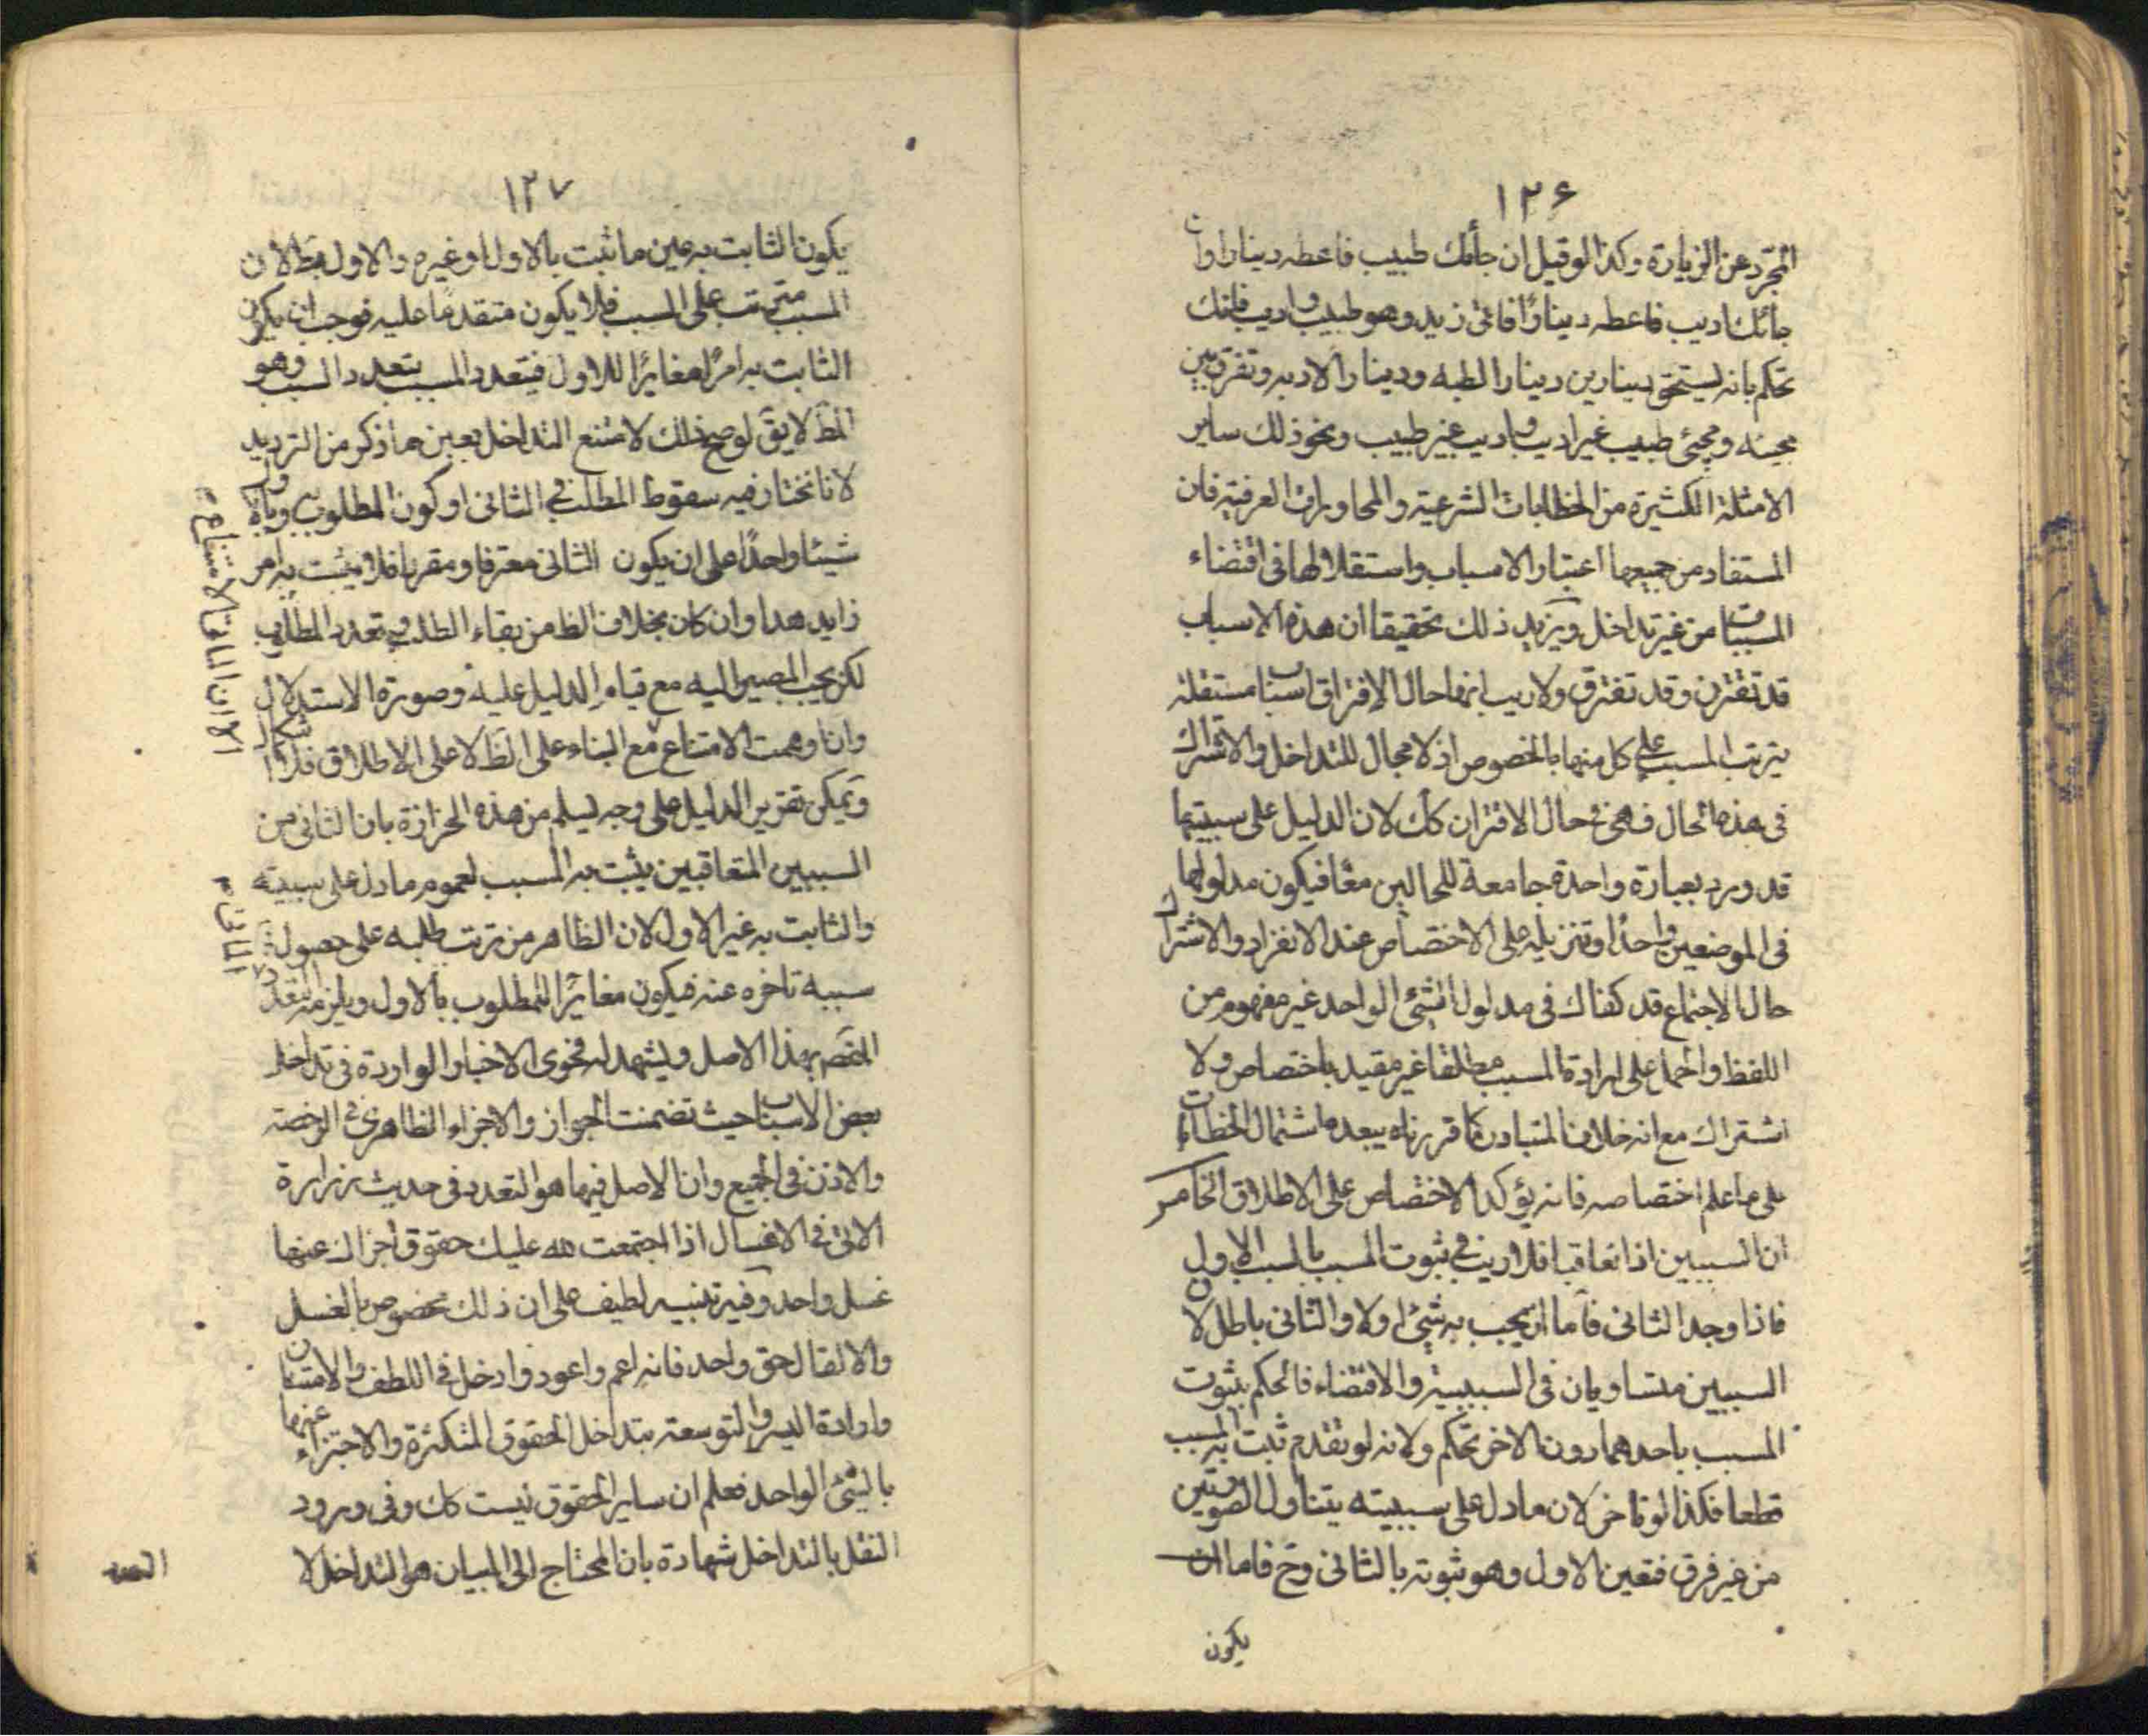 ١٢۶
المجرد عن الزيارة وكذا لو قيل ان جائك طبيب فاعطه دينارا وان
جائك اديب فاعطه دينارًا فاتى زيد وهو طبيب واديب فانك
تحكم بانه يستحق دينارين دينارا لطبه ودينارا لادبه وتفرق بين
مجيئه ومجيئ طبيب غير اديب واديب غير طبيب ونحو ذلك ساير
الامثلة الكثيرة من الخطابات الشرعية والمحاورات العرفية فان
المستفاد من جميعها اعتبار الاسباب واستقلالها فى اقتضاء
المسببات من غير تداخل ويزيد ذلك تحقيقا ان هذه الاسباب
قد تقترن وقد تفترق ولا ريب انها حال الافتراق اسباب مستقلة
يترتب المسبب على كل منها بالخصوص اذ لا مجال للتداخل والاشتراك
فى هذه الحال فهى فى حال الاقتران كك لان الدليل على سببيتها
قد ورد بعبارة واحدة جامعة للحالين معًا فيكون مدلولها
فى الموضعين واحدًا وتنزيله على الاختصاص عند الانفراد والاشتراك
حال الاجتماع قد كفناك فى مدلول الشئ الواحد غير مفهوم من
اللفظ والحمل على ارادة المسبب مطلقا غير مقيد باختصاص ولا
اشتراك مع انه خلاف المتبادر كما قررناه يبعده اشتمال الخطابات
على ما علم اختصاصه فانه يؤكد الاختصاص على الاطلاق الخامس
ان السببين اذا تعاقبا فلا ريب فى ثبوت المسبب بالسبب الاول
فاذا وجد الثانى فاما ان يجب به شئ اولا والثانى باطل لان
السببين متساويان فى السببية والاقتضاء فالحكم بثبوت
المسبب باحدهما دون الاخر تحكم ولانه لو تقدم ثبت به المسبب
قطعا فكذا لو تاخر لان ما دل على سببيته يتناول الصورتين
من غير فرق فتعين الاول وهو ثبوته بالثانى وح فاما ان
يكون
١٢٧
يكون الثابت به عين ما ثبت بالاول او غيره والاول بط لان
المسبب مترتب على السبب فلا يكون متقدمًا عليه فوجب ان يكون
الثابت به امرًا مغايرًا للاول فيتعدد المسبب بتعدد السبب وهو
المط لا يق لو صح ذلك لامتنع التداخل بعين ما ذكر من الترديد
لانا نختار فيه سقوط الطلب فى الثانى او كون المطلوب به وبالاول
شيئا واحدًا على ان يكون الثانى معرفا ومقررا فلا يثبت به امر
زايد هذا وان كان بخلاف الظ من بقاء الطلب وتعدد المطلوب
لكن يجب المصير اليه مع قيام الدليل عليه وصورة الاستدلال
وان اوهمت الامتناع مع البناء على الظ لا على الاطلاق فلا اشكال
ويمكن تقرير الدليل على وجه يسلم من هذه الحزازة بان الثانى من
السببين المتعاقبين يثبت به المسبب لعموم ما دل على سببيته
والثابت به غير الاول لان الظاهر من ترتب طلبه على حصول
سببه تاخره عنه فيكون مغايرًا للمطلوب بالاول ويلزمه التعدد
المقصم بهذا الاصل ويشهد له فحوى الاخبار الواردة فى تداخل
بعض الاسباب حيث تضمنت الجواز والاجزاء الظاهر فى الرخصة
والاذن فى الجميع وان الاصل فيها هو التعدد فى حديث زرارة
الاتى فى الاغسال اذا اجتمعت لله عليك حقوق اجزاك عنها
غسل واحد وفيه تنبيه لطيف على ان ذلك مخصوص بالغسل
والا لقال حق واحد فانه اعم واعود وادخل فى اللطف والامتنان
وارادة اليسر والتوسعة بتداخل الحقوق المتكثرة والاجتزاء عنها
بالشئ الواحد فعلم ان ساير الحقوق ليست كك وفى ورود
النقل بالتداخل شهادة بان المحتاج الى البيان هو التداخل لا